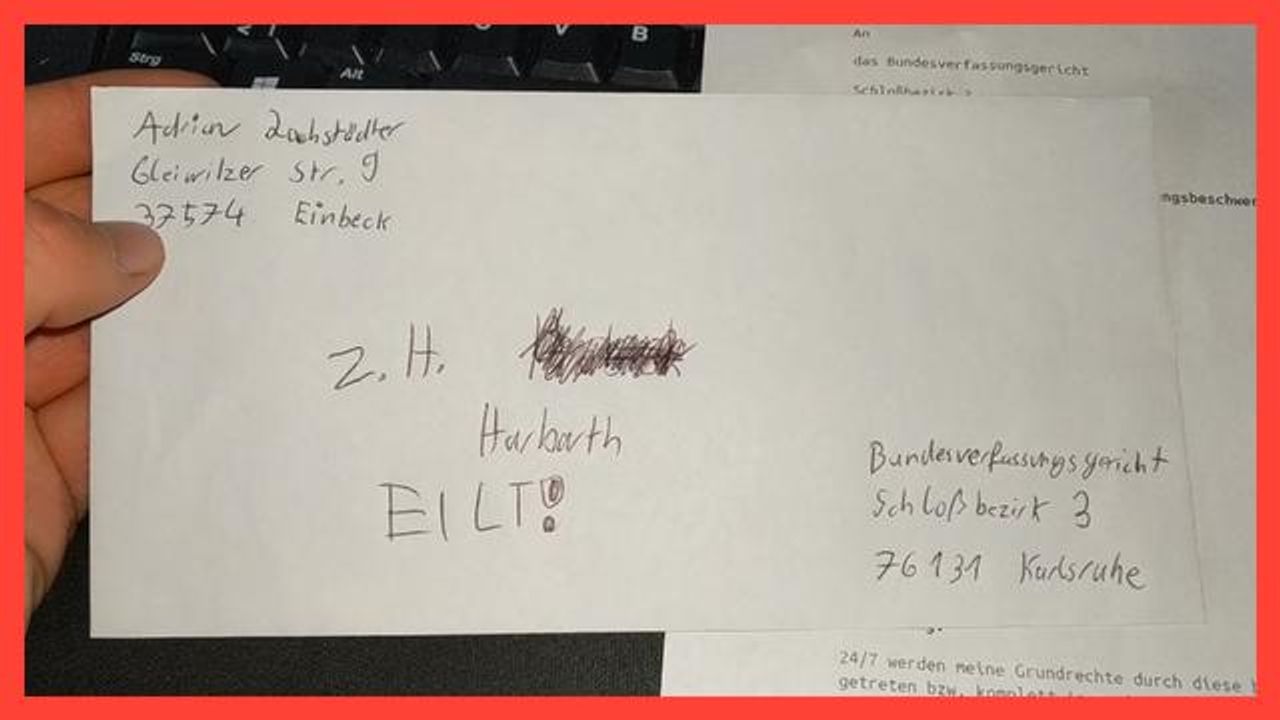 Strg
Alt
V
B
An
das Bundesverfassungsgericht
Schloßbezirk 3
Adrian
Gleiwitzer Str. 9
37574 Einbeck
ngsbeschwer
z. H.
Harbarth
EILT!
Bundesverfassungsgericht
Schloßbezirk 3
76131 Karlsruhe
24/7 werden meine Grundrechte durch diese
getreten bzw. komplett